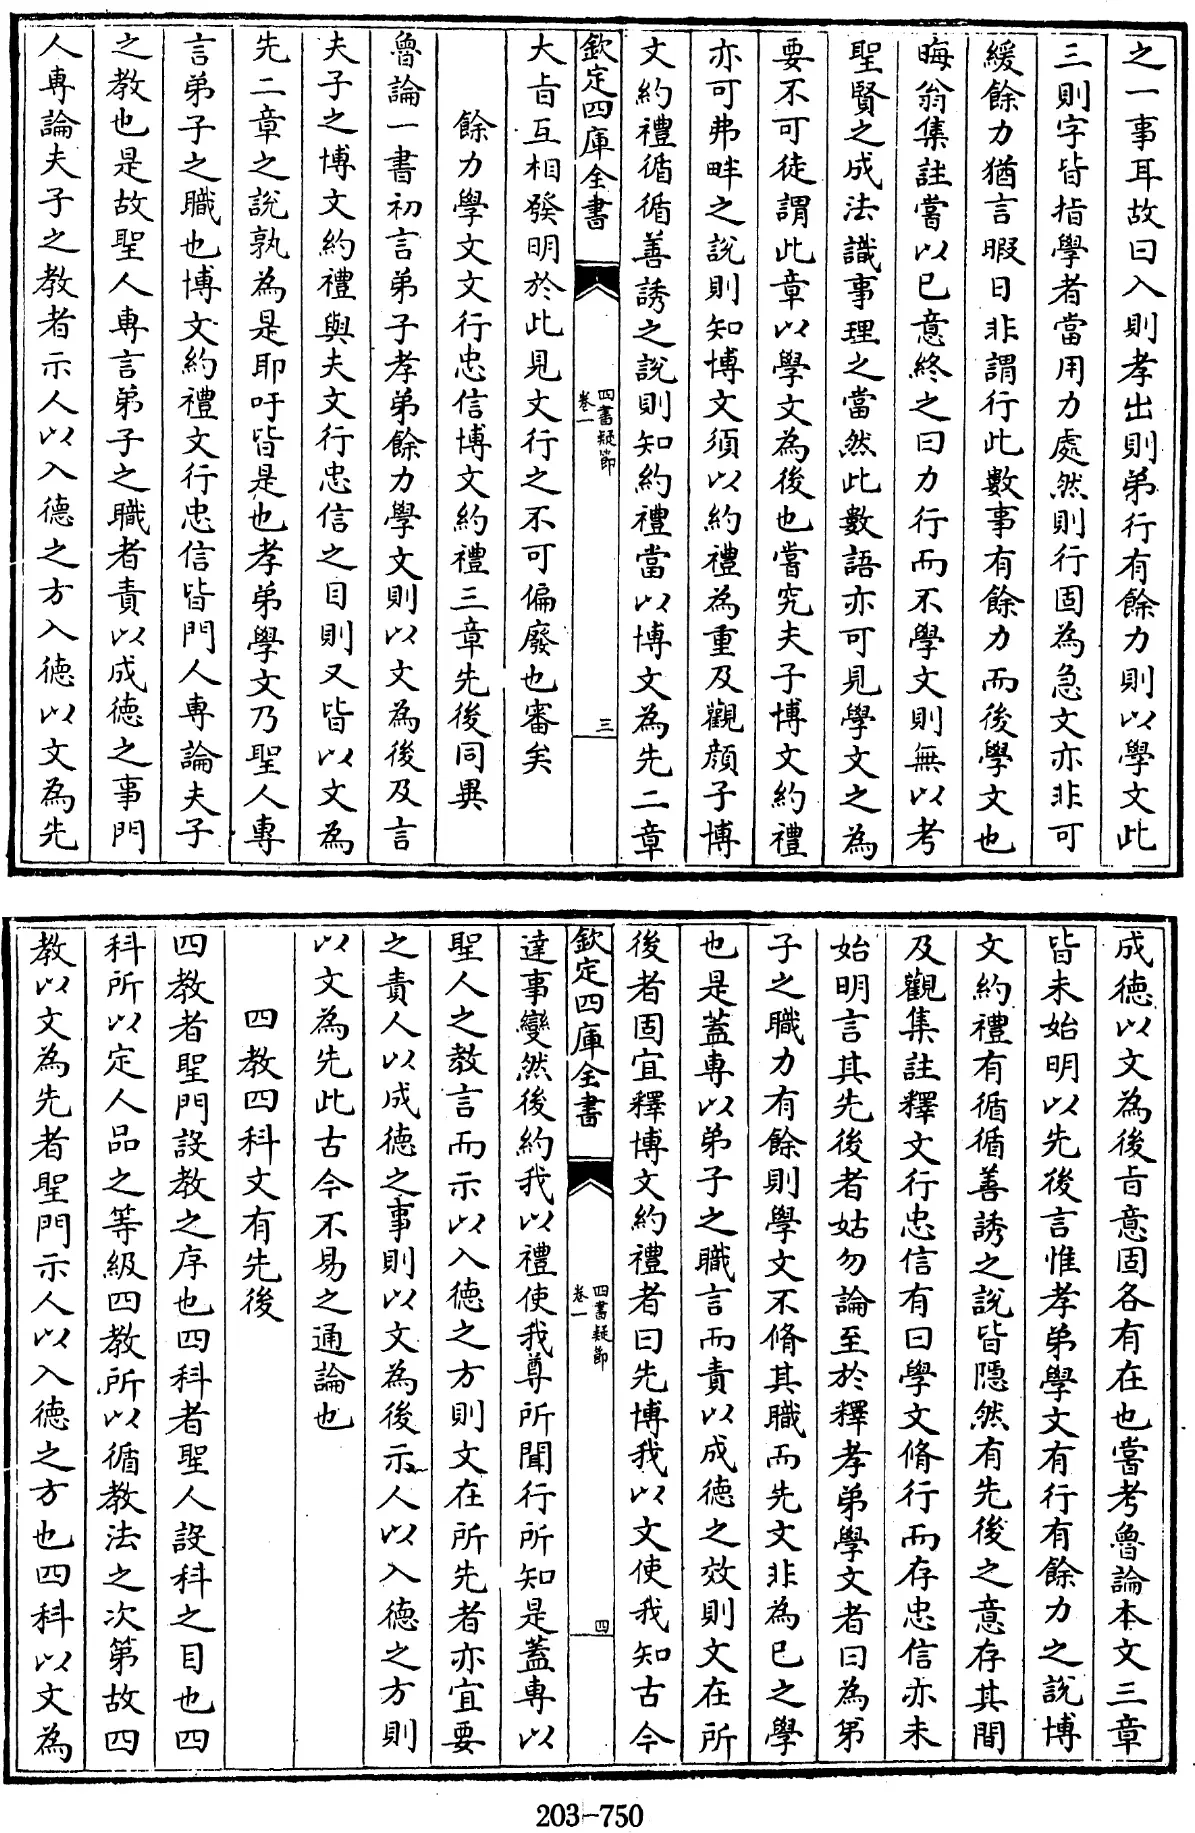 之一事耳故曰入則孝出則弟行有餘力則以學文此
三則字皆指學者當用力處然則行固為急文亦非可
緩餘力猶言暇日非謂行此數事有餘力而後學文也
晦翁集註嘗以已意終之曰力行而不學文則無以考
聖賢之成法識事理之當然此數語亦可見學文之為
要不可徒謂此章以學文為後也嘗究夫子博文約禮
亦可弗畔之說則知博文須以約禮為重及觀顔子博
文約禮循循善誘之說則知約禮當以博文為先二章
欽定四庫全書
四書疑節
卷一
三
大㫖互相發明於此見文行之不可偏廢也審矣
餘力學文文行忠信博文約禮三章先後同異
魯論一書初言弟子孝弟餘力學文則以文為後及言
夫子之博文約禮與夫文行忠信之目則又皆以文為
先二章之說孰為是耶吁皆是也孝弟學文乃聖人專
言弟子之職也博文約禮文行忠信皆門人專論夫子
之教也是故聖人專言弟子之職者責以成徳之事門
人專論夫子之教者示人以入德之方入徳以文為先
成徳以文為後㫖意固各有在也嘗考魯論本文三章
皆未始明以先後言惟孝弟學文有行有餘力之說博
文約禮有循循善誘之說皆隱然有先後之意存其間
及觀集註釋文行忠信有曰學文脩行而存忠信亦未
始明言其先後者姑勿論至於釋孝弟學文者曰為弟
子之職力有餘則學文不脩其職而先文非為已之學
也是蓋專以弟子之職言而責以成德之效則文在所
後者固宜釋博文約禮者曰先博我以文使我知古今
欽定四庫全書
四書疑節
卷一
四
達事變然後約我以禮使我尊所聞行所知是蓋專以
聖人之教言而示以入德之方則文在所先者亦宜要
之責人以成德之事則以文為後示人以入德之方則
以文為先此古今不易之通論也
四教四科文有先後
四教者聖門設教之序也四科者聖人設科之目也四
科所以定人品之等級四教所以循教法之次第故四
教以文為先者聖門示人以入德之方也四科以文為
203-750